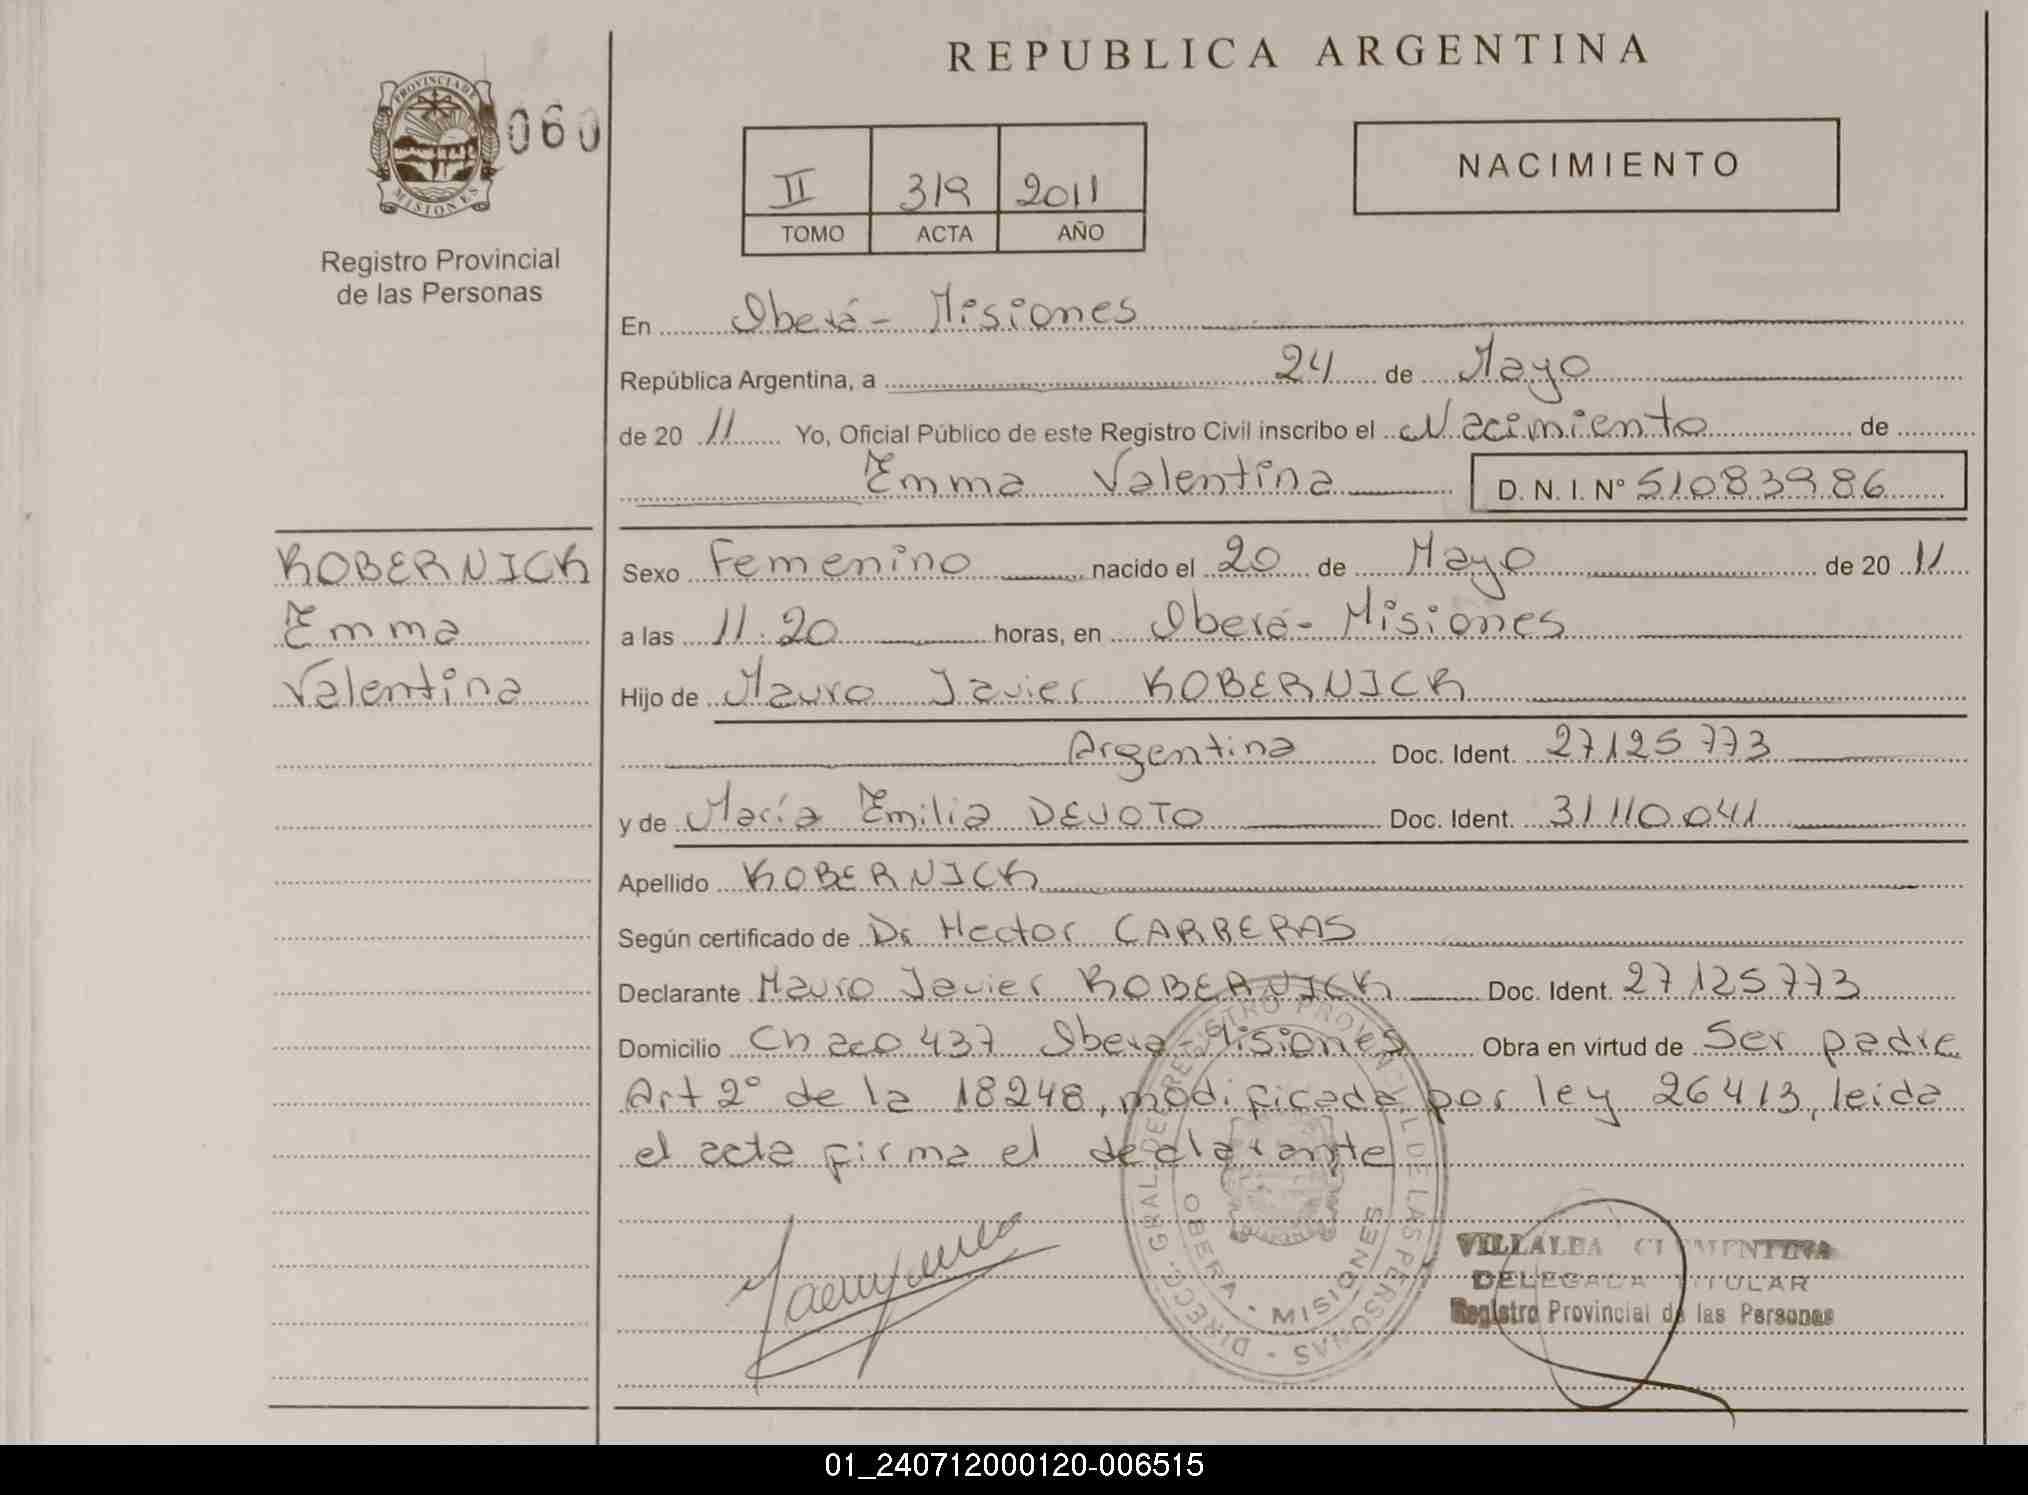 REPUBLICA ARGENTINA
PROVINCIA DE MISIONES
060
Registro Provincial
de las Personas
II 319 2011
TOMO ACTA AÑO
NACIMIENTO
En Oberá - Misiones
República Argentina, a 24 de Mayo
de 20 11 Yo, Oficial Público de este Registro Civil inscribo el Nacimiento de
Emma Valentina D. N. I. Nº 51083986
KOBERNICK
Emma
Valentina
Sexo Femenino nacido el 20 de Mayo de 20 11
a las 11.20 horas, en Oberá - Misiones
Hijo de Mauro Javier KOBERNICK
Argentina Doc. Ident. 27125773
y de María Emilia DEVOTO Doc. Ident. 31110041
Apellido KOBERNICK
Según certificado de Dr Hector CARRERAS
Declarante Mauro Javier KOBERNICK Doc. Ident. 27125773
Domicilio Chaco 437 Oberá - Misiones Obra en virtud de Ser padre
Art 2º de la 18248, modificada por ley 26413, leida
el acta firma el declarante
DIRECC. GRAL. DE REGISTRO PROVINCIAL DE LAS PERSONAS
OBERA - MISIONES
VILLALBA CLEMENTINA
DELEGADA TITULAR
Registro Provincial de las Personas
01_240712000120-006515